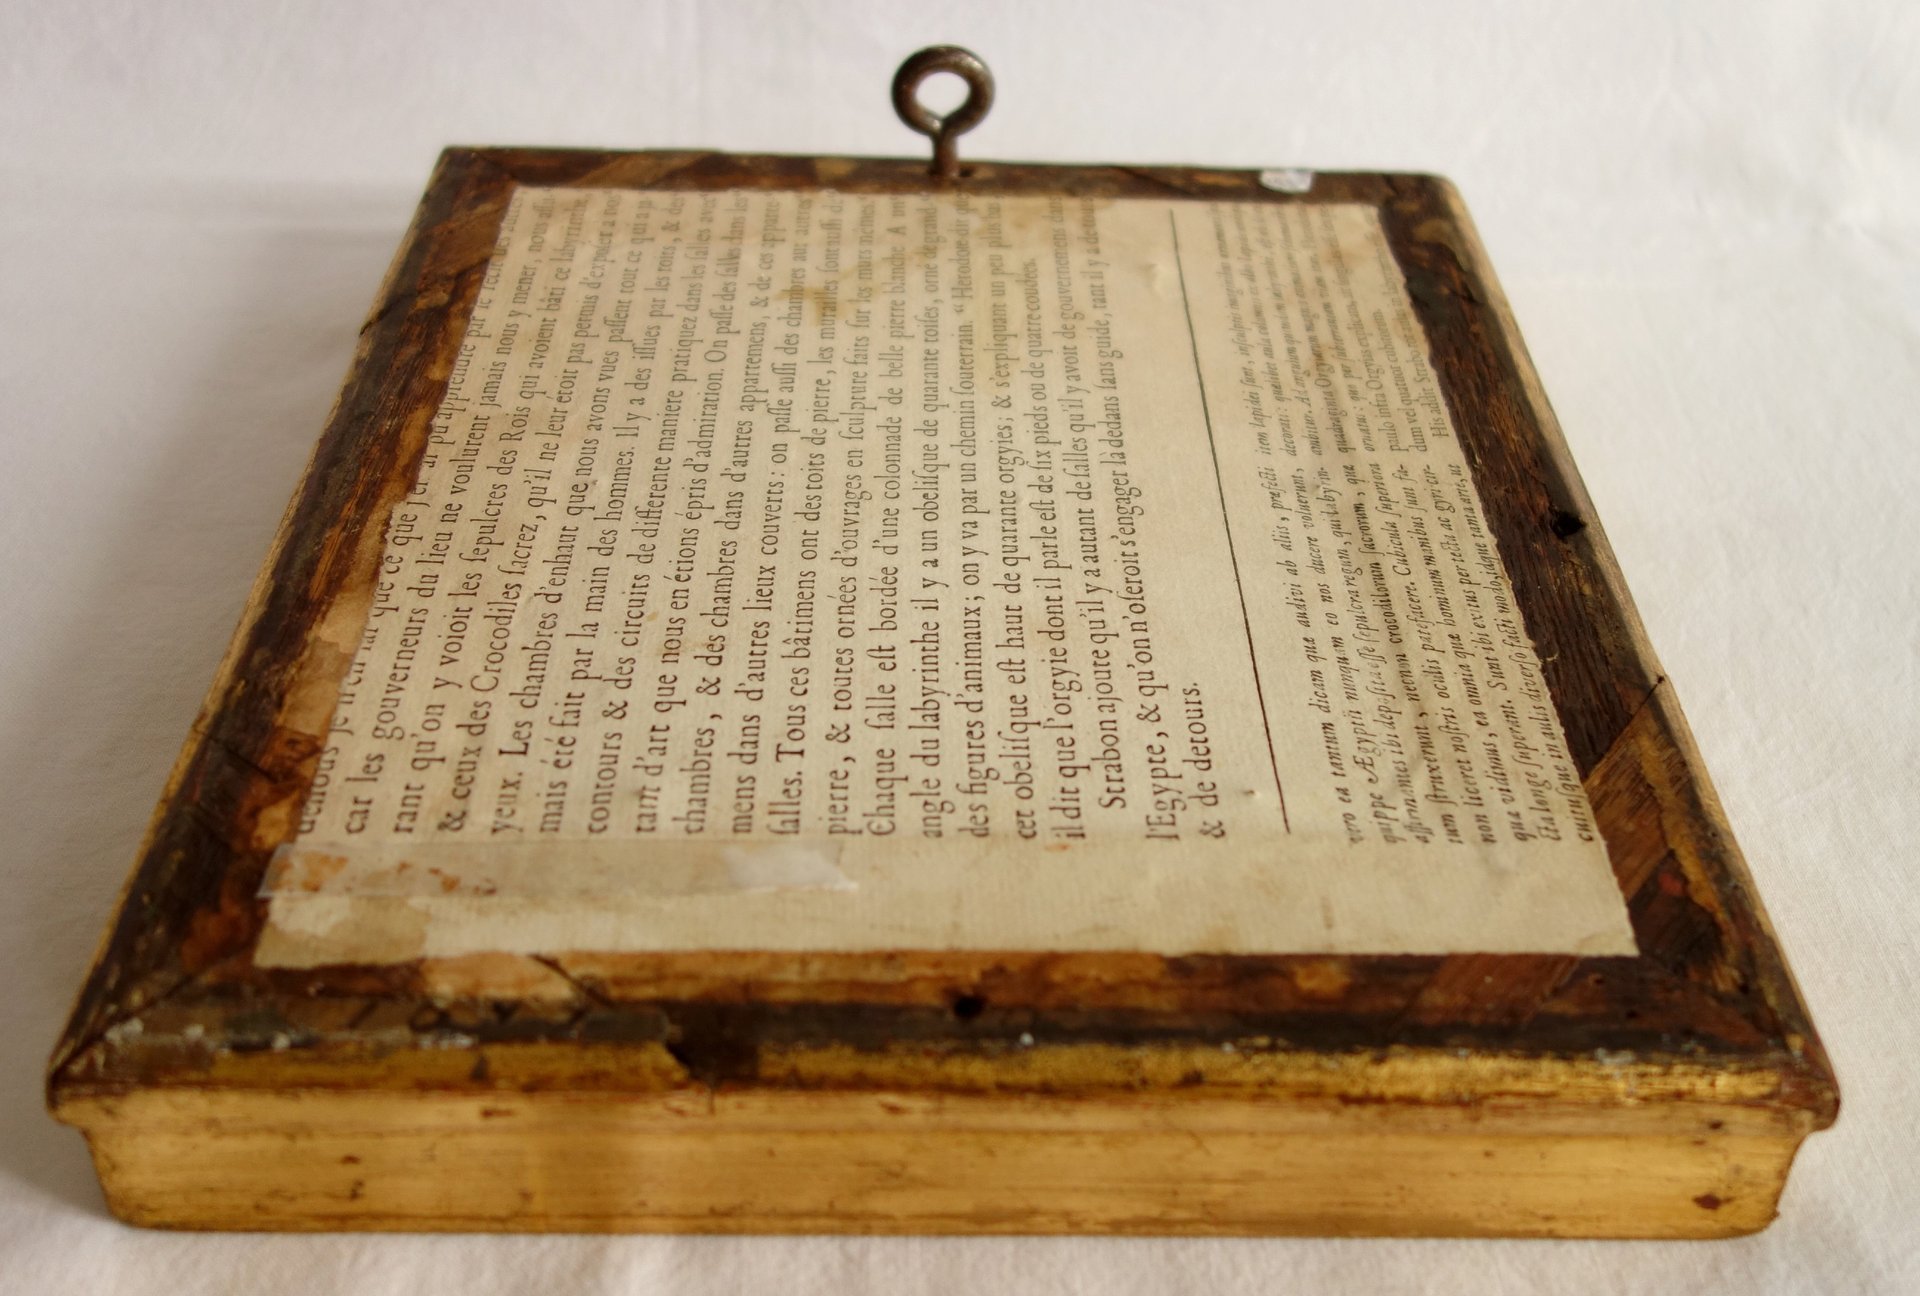 car les gouverneurs du lieu ne voulurent jamais nous y mener, nous
rant qu'on y voioit les ſepulcres des Rois qui avoient bâti ce labyrinthe,
& ceux des Crocodiles ſacrez, qu'il ne leur étoit pas permis d'expoſer a nos
yeux. Les chambres d'enhaut que nous avons vues paſſent tout ce qui a
mais été fait par la main des hommes. Il y a des iſſues par les toits, & des
contours & des circuits de differente maniere pratiquez dans les ſalles avec
tant d'art que nous en étions épris d'admiration. On paſſe des ſalles dans les
chambres, & des chambres dans d'autres appartemens, & de ces apparte-
mens dans d'autres lieux couverts: on paſſe auſſi des chambres aux autres
ſalles. Tous ces bâtimens ont des toits de pierre, les murailles ſont auſſi de
pierre, & toutes ornées d'ouvrages en ſculpture faits ſur les murs mêmes.
Chaque ſalle eſt bordée d'une colonnade de belle pierre blanche. A un
angle du labyrinthe il y a un obeliſque de quarante toiſes, orné de grandes
des figures d'animaux; on y va par un chemin ſouterrain. “Herodote dit que
cet obeliſque eſt haut de quarante orgyies; & s'expliquant un peu plus bas,
il dit que l'orgyie dont il parle eſt de ſix pieds ou de quatre coudées.
Strabon ajoute qu'il y a autant de ſalles qu'il y avoit de gouvernemens dans
l'Egypte, & qu'on n'oſeroit s'engager là dedans ſans guide, tant il y a de tours
& de detours.
vero ea tantum dicam quæ audivi ab aliis, præfecti
quippe Ægyptii nunquam eo nos ducere voluerunt,
affirmantes ibi depoſita eſſe ſepulcra regum, qui labyrin-
tum ſtruxerunt, necnon crocodilorum ſacrorum, quæ
non liceret noſtris oculis patefacere. Cubicula ſuperiora
quæ vidimus, ea omnia quæ hominum manibus ſunt fa-
cta longe ſuperant. Sunt ibi exitus per tecta ac gyri cir-
cuituſque in aulis diverſo facti modo, idque tanta arte, ut
item lapidei ſunt, inſculptis imaginibus
decorati: quælibet aula columnis ex albo lapide
ambitur. Ad angulum
quadraginta Orgyarum
ornatu: quo per ſubterraneam viam
paulo infra Orgyias explicans,
dum vel quatuor cubitorum.
His addit Strabo